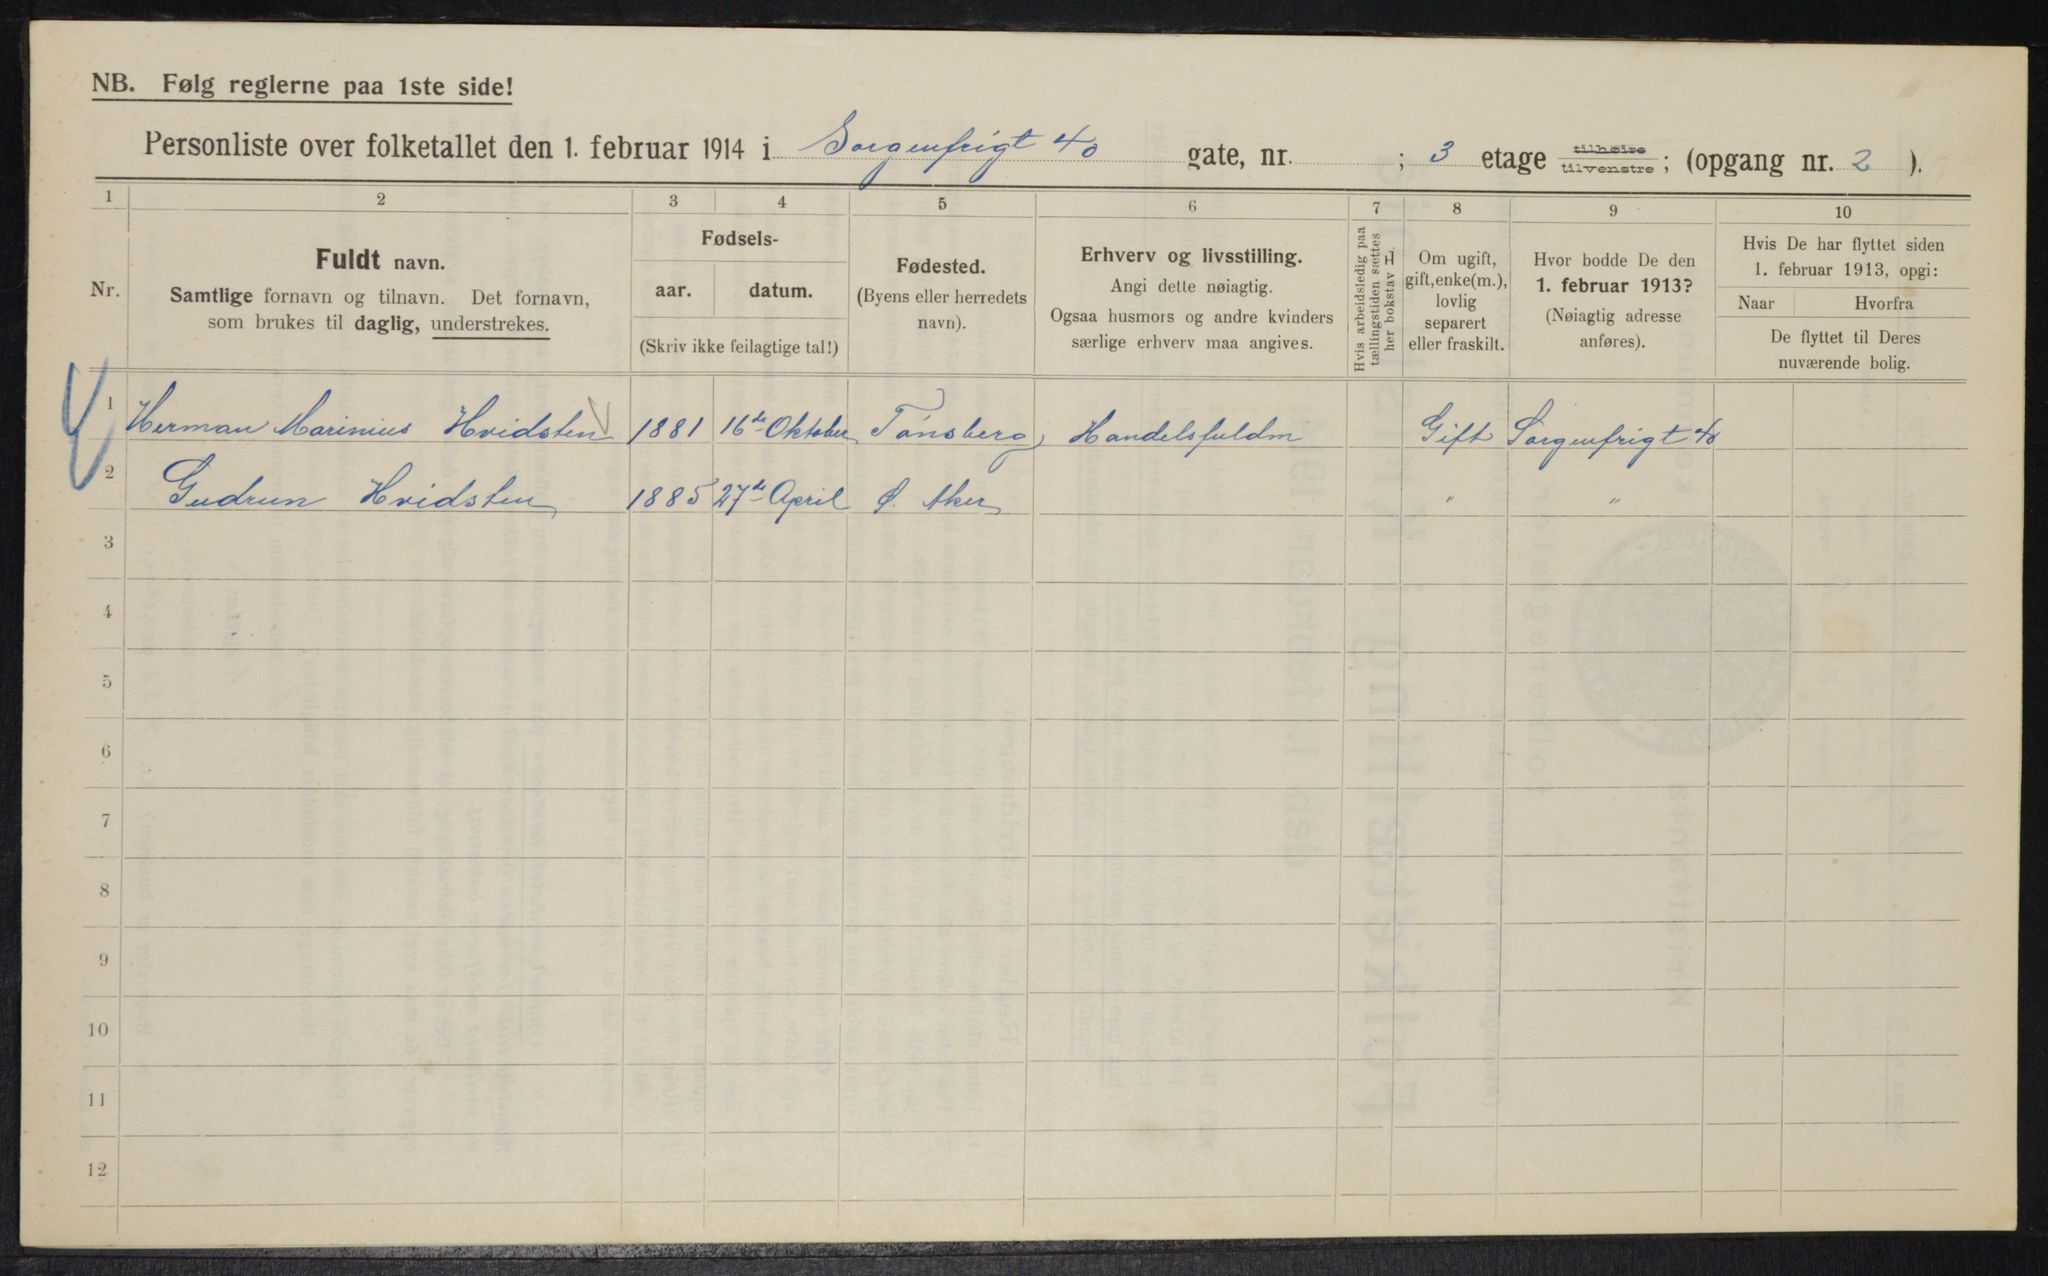 NB. Følg reglerne paa 1ste side!
Personliste over folketallet den 1. februar 1914 i Sorgenfrigt 40 gate, nr. ; 3 etage tilhøire tilvenstre; (opgang nr. 2 ).
1 2 3 4 5 6 7 8 9 10
Nr.
Fuldt navn.
Samtlige fornavn og tilnavn. Det fornavn,
som brukes til daglig, understrekes.
Fødsels-
aar. datum.
(Skriv ikke feilagtige tal!)
Fødested.
(Byens eller herredets
navn).
Erhverv og livsstilling.
Angi dette nøiagtig.
Ogsaa husmors og andre kvinders
særlige erhverv maa angives.
Hvis arbeidsledig paa
tællingstiden sættes
her bokstav L.
Om ugift,
gift, enke(m.),
lovlig
separert
eller fraskilt.
Hvor bodde De den
1. februar 1913?
(Nøiagtig adresse
anføres).
Hvis De har flyttet siden
1. februar 1913, opgi:
Naar Hvorfra
De flyttet til Deres
nuværende bolig.
1 Herman Marinius Hvidsten 1881 16de Oktober Tønsberg Handelsfuldm Gift Sorgenfrigt 40
2 Gudrun Hvidsten 1885 27de April Ø. Aker " "
3
4
5
6
7
8
9
10
11
12